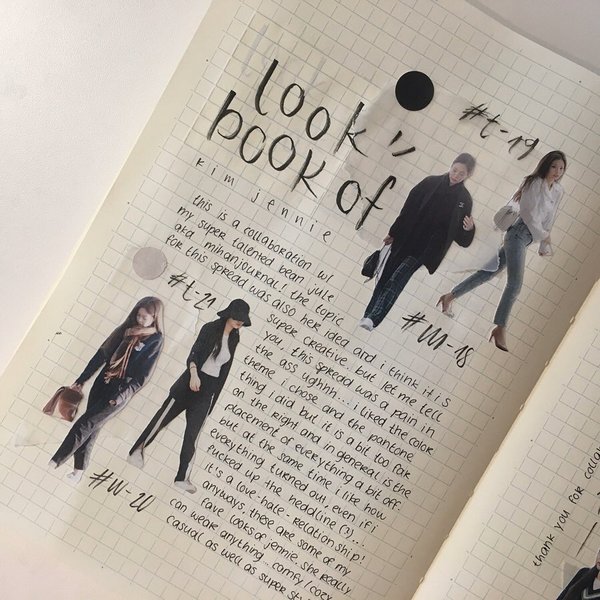 look
book of
kim jennie
#t-19
#M-18
this is a collaboration w/
my super talented bean jule
aka mihanjournal! the topic
for this spread was also her idea and i think it is
super creative but let me tell
you.. this spread was a pain in
the ass ughhh... i liked the color
theme i chose and the pantone
thing i did but it is a bit too far
on the right and in general is the
placement of everything a bit off.
but at the same time i like how
everything turned out, even if i
fucked up the headline (?)...
it's a love-hate-relationship!
anyways, these are some of my
fave looks of jennie. she really
can weare anything... comfy/cozy
casual as well as super st
#t-21
#W-20
thank you for colla